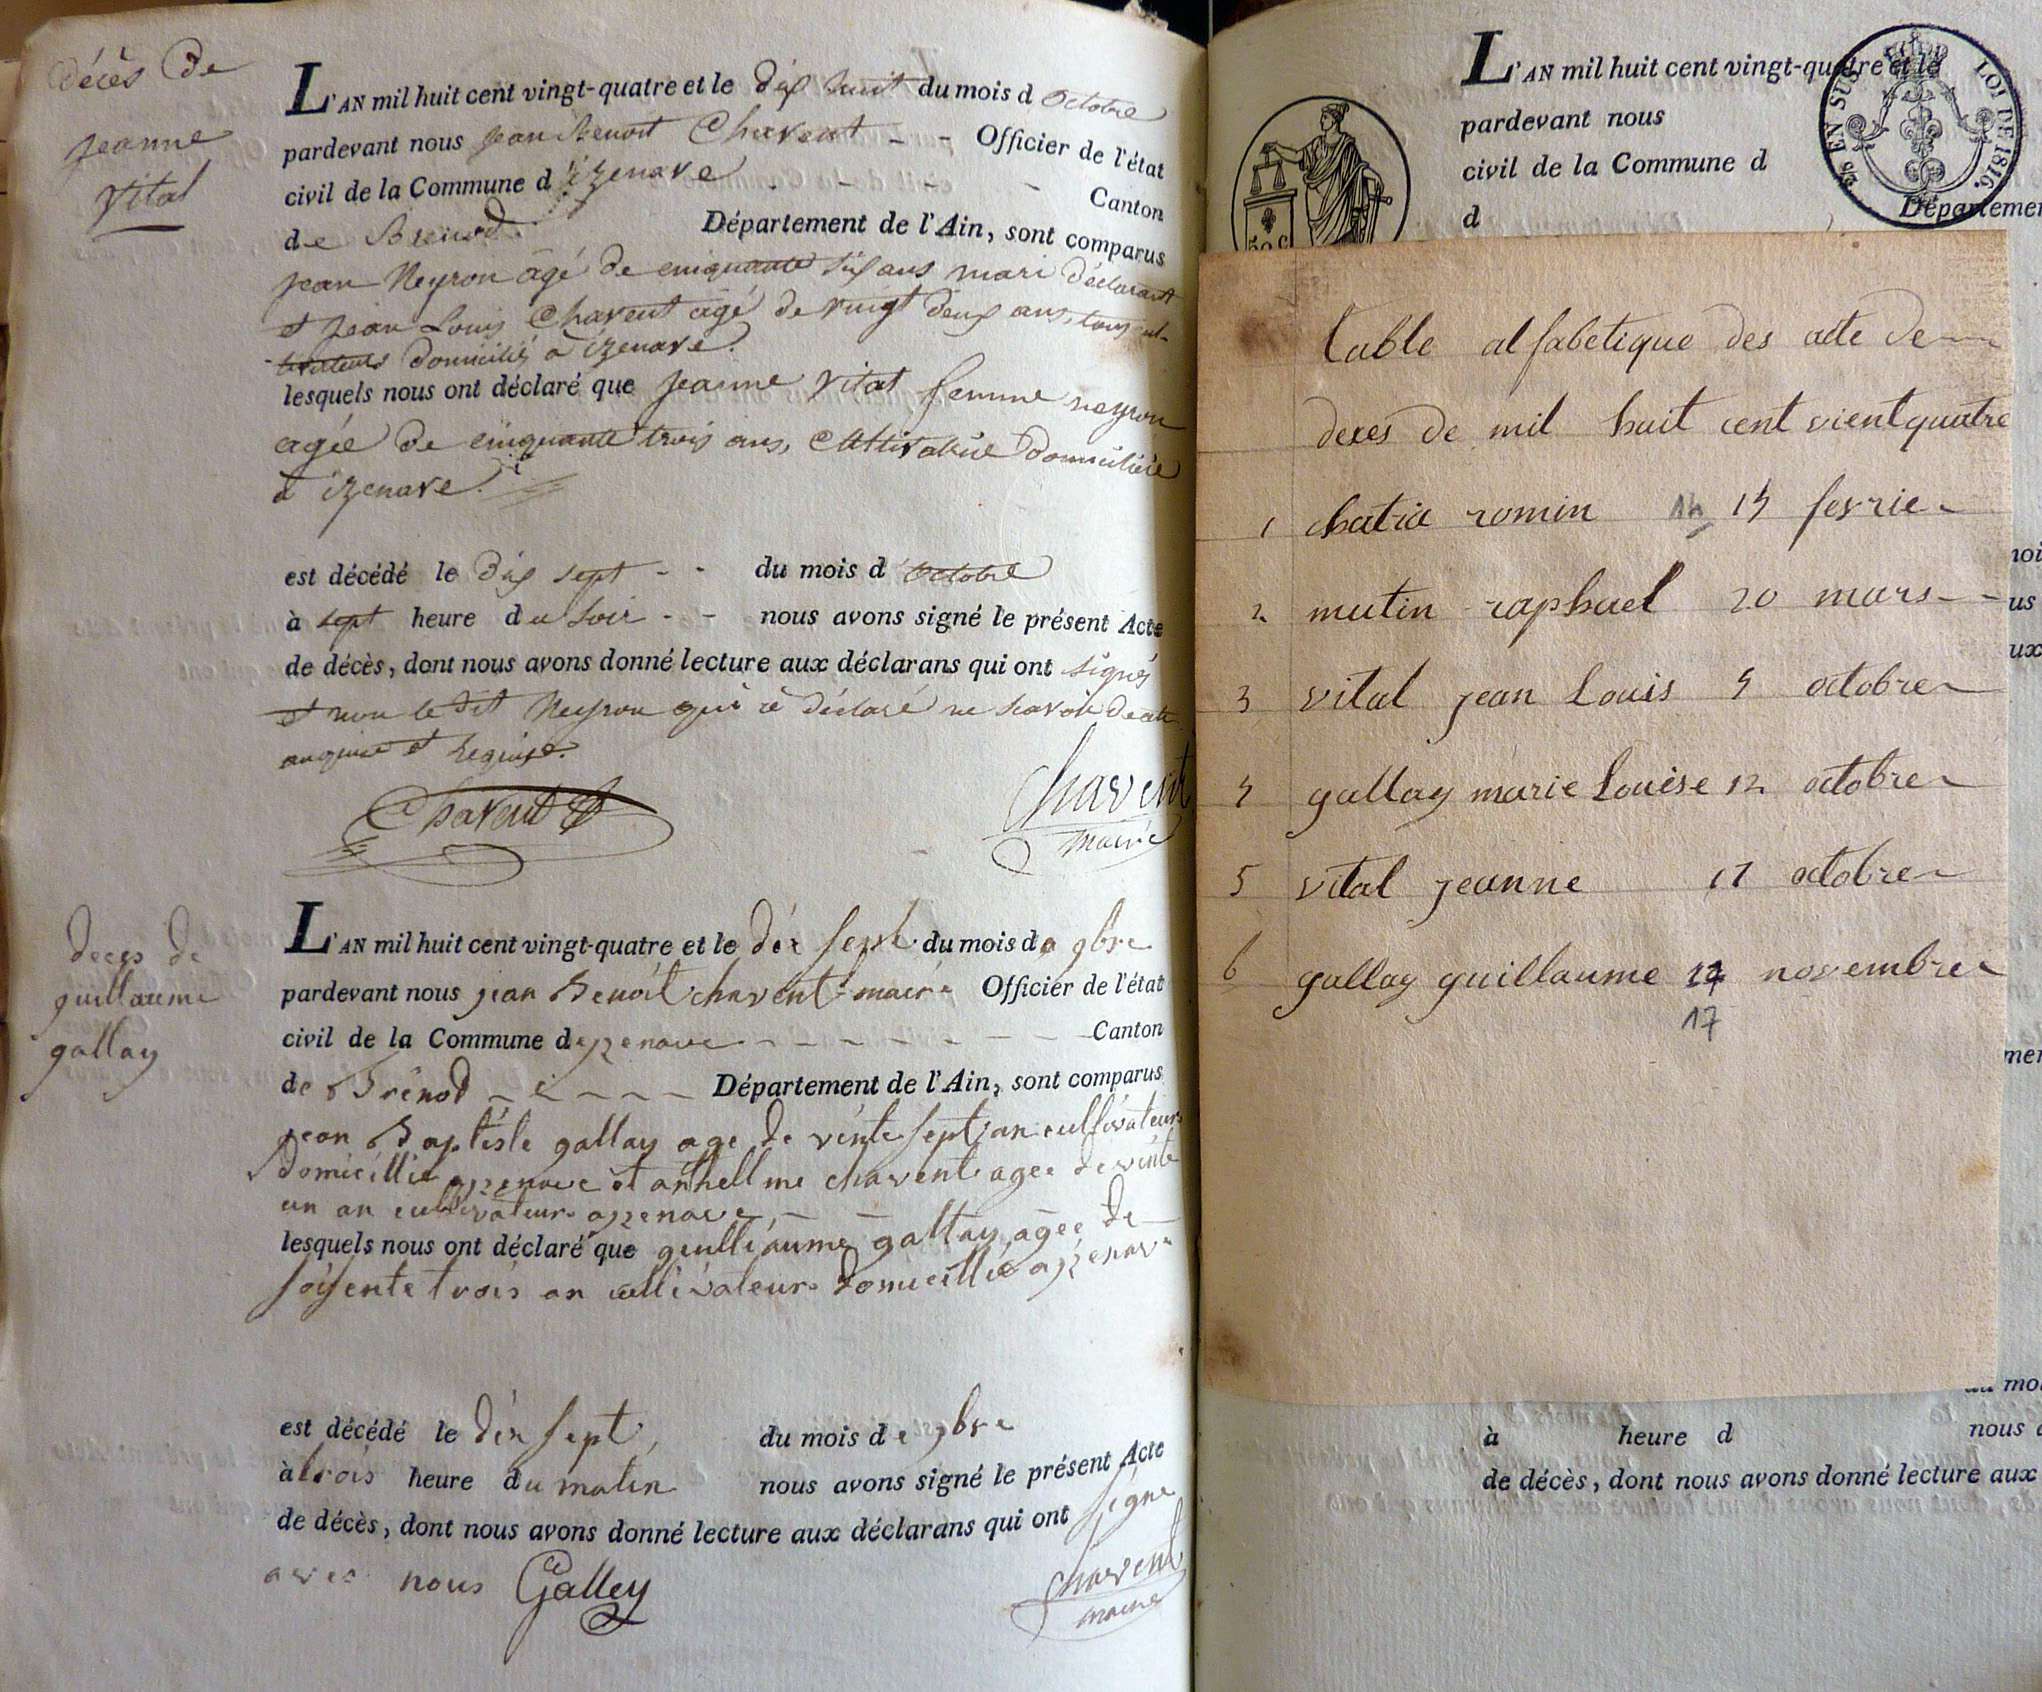 décès de
jeanne
Vital
L'AN mil huit cent vingt-quatre et le dix huit du mois d octobre
pardevant nous jean Benoit Chavent - - Officier de l'état
civil de la Commune d'izenave - - - - Canton
de Brenod Département de l'Ain, sont comparus
jean Neyron agé de cinquante six ans mari déclarant
et jean Louis Chavent agé de vingt deux ans, tous cul-
tivateurs domiciliés à izenave.
lesquels nous ont déclaré que jeanne Vital femme neyron
agée de cinquante trois ans, Cultivatrice domiciliée
à izenave.
est décédé le dix sept - - du mois d'octobre
à sept heure du soir - - nous avons signé le présent Acte
de décès, dont nous avons donné lecture aux déclarans qui ont signés
et non le dit Neyron qui a déclaré ne savoir de ce
enquis et requis.
Chavent
Chavent
maire
deces de
guillaume
gallay
L'AN mil huit cent vingt-quatre et le dix sept du mois de 9bre
pardevant nous jean Benoit chavent maire Officier de l'état
civil de la Commune dyzenave - - - - - - Canton
de Brénod - - - - - Département de l'Ain, sont comparus
jean Baptiste gallay age de vente sept an cultivateur
domicillie ayzenave et anthellme chavent agee de vente
un an cultivateur ayzenave - -
lesquels nous ont déclaré que guilliaume gallay agee de
soisente trois an cultivateur domicillié ayzenave
est décédé le dix sept du mois de 9bre
à trois heure du matin nous avons signé le présent Acte
de décès, dont nous avons donné lecture aux déclarans qui ont signe
avec nous Galley
chavent
maire
L'AN mil huit cent vingt-quatre et le
pardevant nous
civil de la Commune d
d Départemen
EN SUS
LOI DE 1816.
50 C
table alfabetique des acte de
deces de mil huit cent vient quatre
1 chatia romin 14 15 fevrie
2 mutin raphael 20 mars
3 vital jean Louis 5 octobre
4 gallay marie Louise 12 octobre
5 vital jeanne 17 octobre
6 gallay guillaume 17 novembre
17
noi
us
ux
men
du moi
à heure d nous a
de décès, dont nous avons donné lecture aux